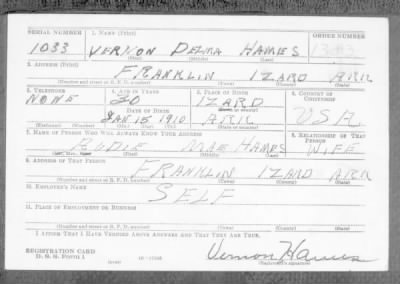 SERIAL NUMBER 1. NAME (Print) ORDER NUMBER
1033 VERNON DELMA HAMES
2. ADDRESS (Print)
FRANKLIN IZARD ARK
(Number and street or R. F. D. number) (Town) (County) (State)
3. TELEPHONE 4. AGE IN YEARS 5. PLACE OF BIRTH 6. COUNTRY OF CITIZENSHIP
NONE 30 IZARD
DATE OF BIRTH (Town or county)
JAN 15 1910 ARK USA
(Exchange) (Number) (Mo.) (Day) (Yr.) (State or country)
7. NAME OF PERSON WHO WILL ALWAYS KNOW YOUR ADDRESS 8. RELATIONSHIP OF THAT PERSON
MAE HAMES WIFE
9. ADDRESS OF THAT PERSON
FRANKLIN IZARD ARK
(Number and street or R. F. D. number) (Town) (County) (State)
10. EMPLOYER'S NAME
SELF
11. PLACE OF EMPLOYMENT OR BUSINESS
(Number and street or R. F. D. number) (Town) (County) (State)
I AFFIRM THAT I HAVE VERIFIED ABOVE ANSWERS AND THAT THEY ARE TRUE.
REGISTRATION CARD
D. S. S. FORM 1 Vernon Hames
(Registrant's signature)